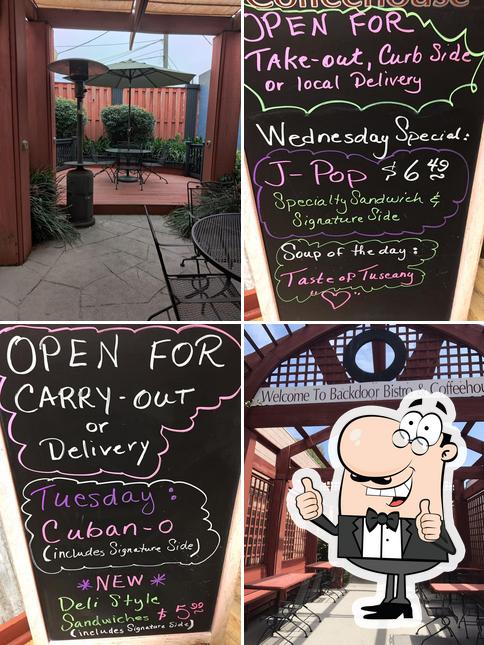 Coffeehouse
OPEN FOR
TAKE-OUT, CURB SIDE
or local Delivery
Wednesday Special:
J-POP $6 49
Specialty Sandwich &
Signature Side
Soup of the day:
Taste of Tuscany
OPEN FOR
CARRY-OUT
or
Delivery
Tuesday:
Cuban-O
(includes Signature Side)
*NEW*
Deli Style
Sandwiches $5.00
(includes Signature Side)
Welcome To Backdoor Bistro & Coffeehou